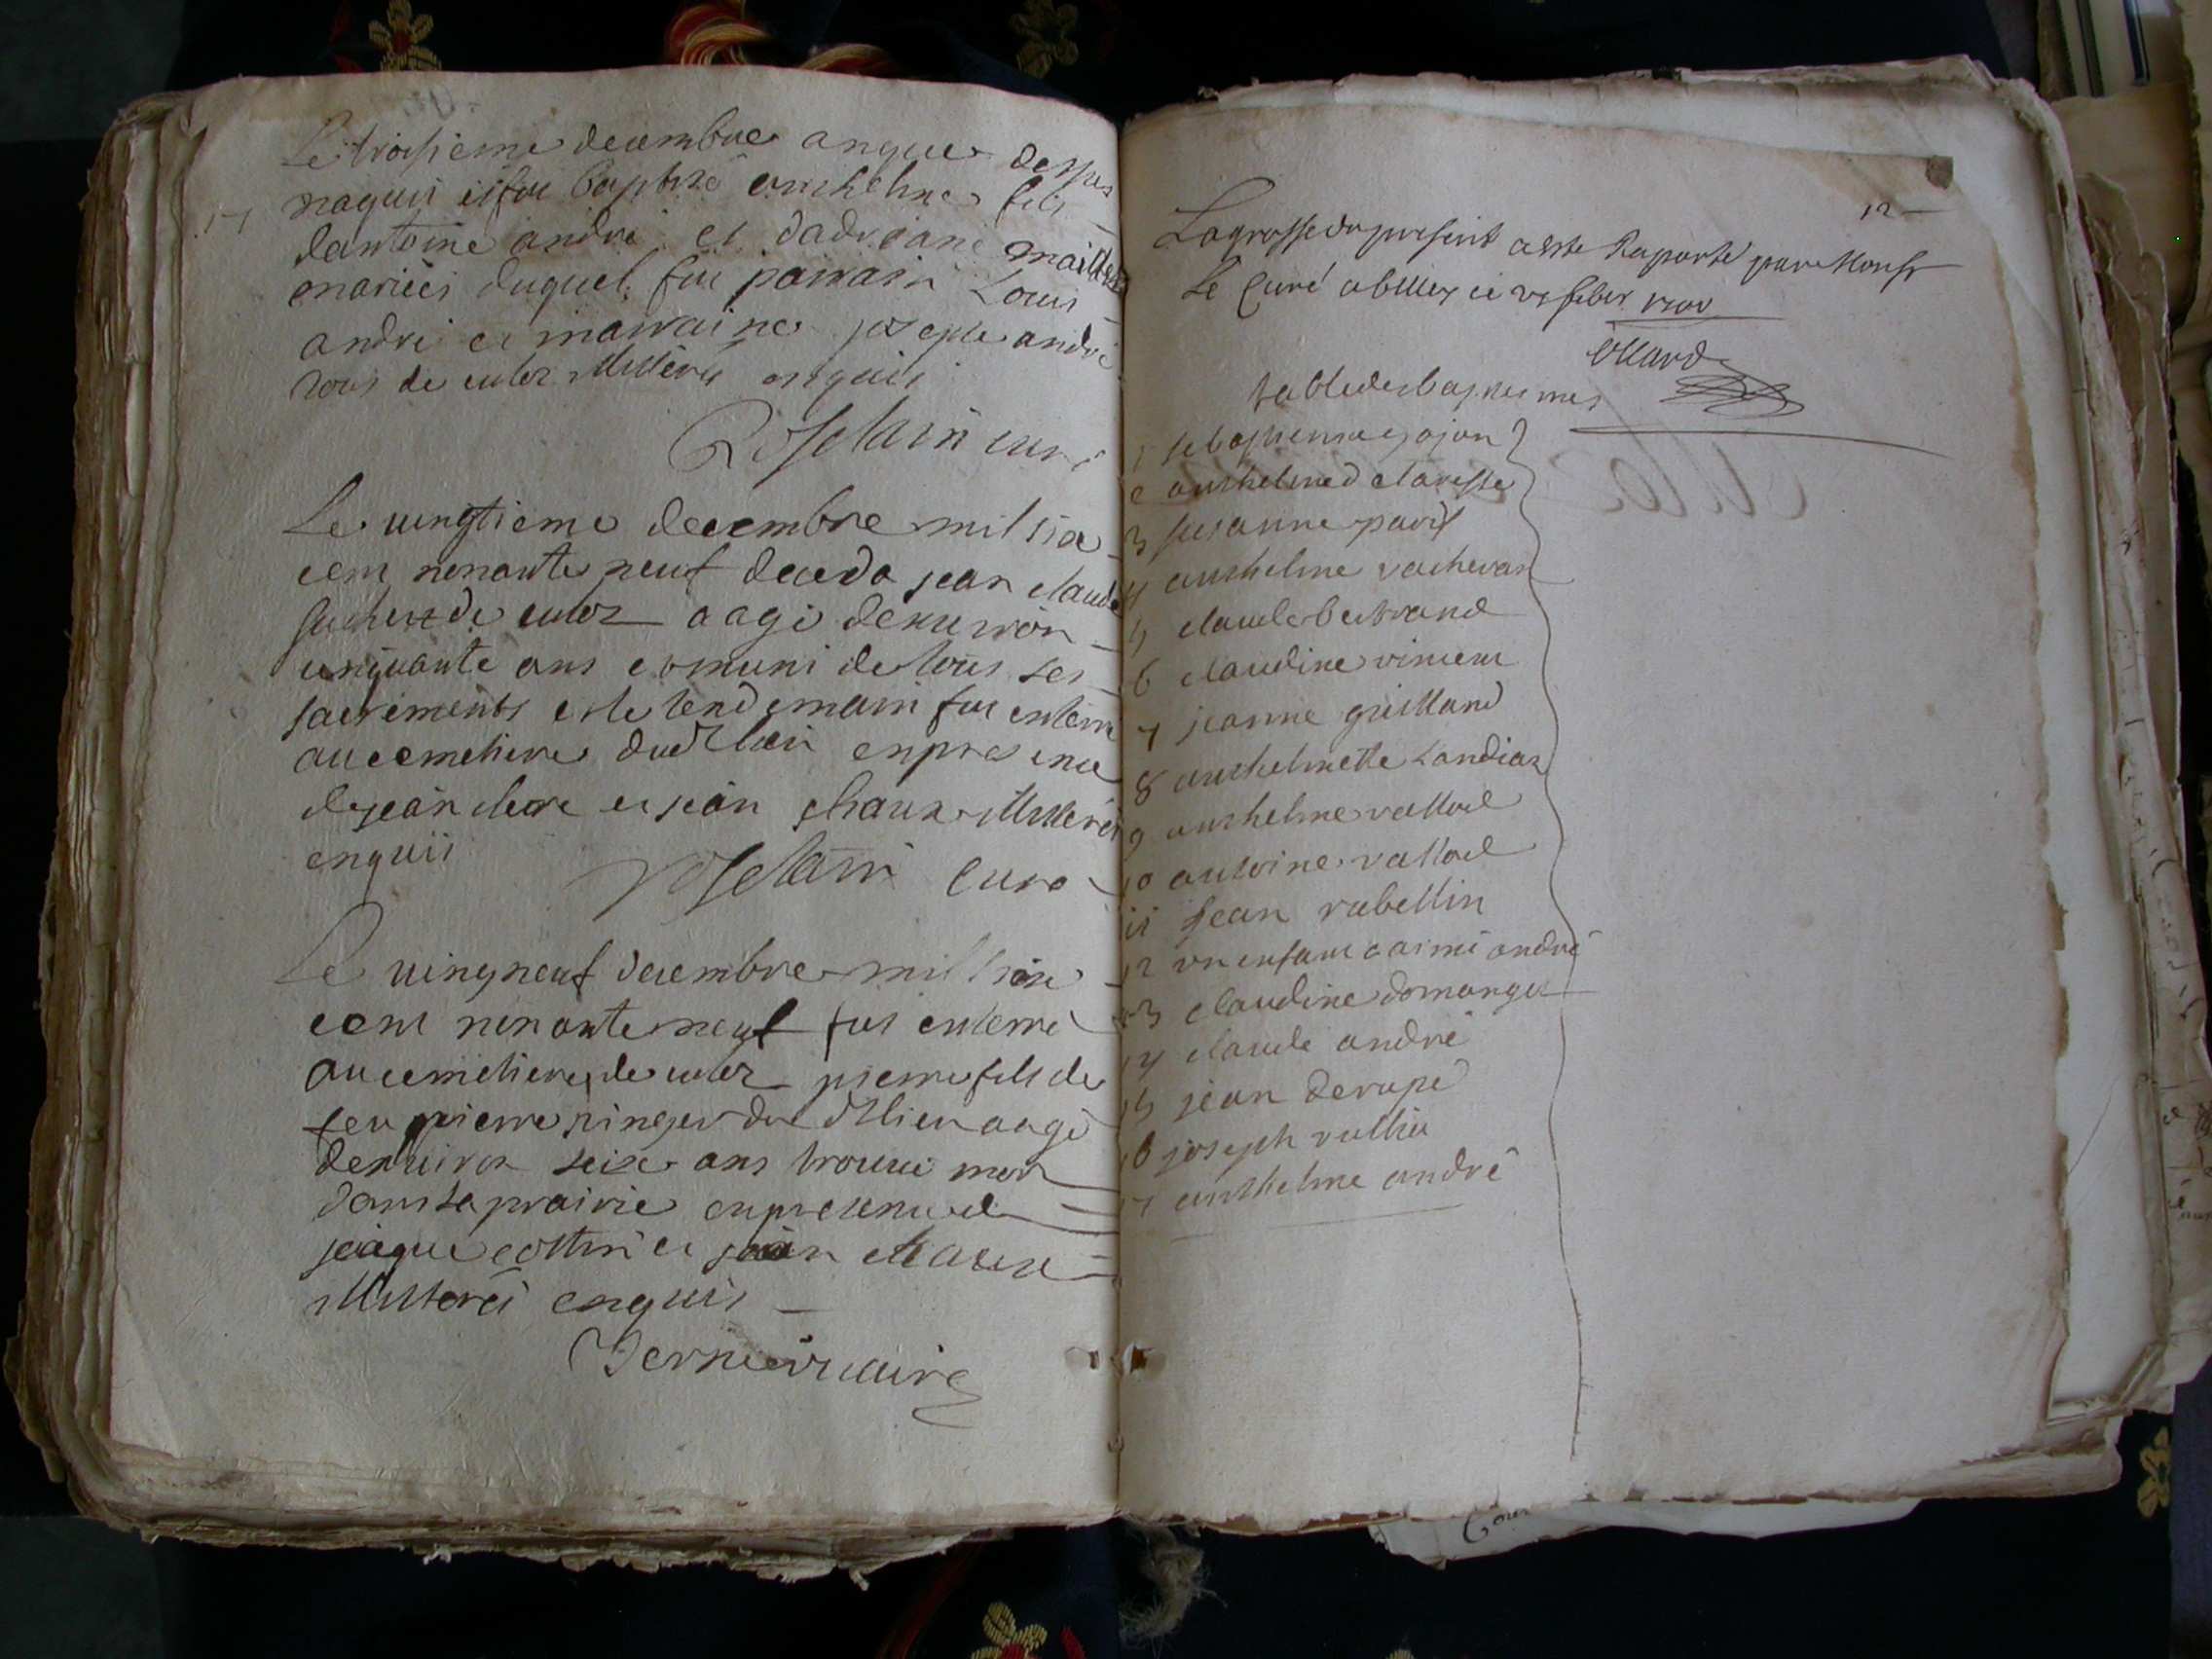 Le troisieme decembre an que dessus
17 naquit et fut baptisé anthelme fils
dantoine andré et dadriane
mariés duquel fut parrain Louis
andré et marraine josephe andré
tous de culoz illiterés enquis
Roselain curé
Le vingtieme decembre mil six
cent nonante neuf deceda jean claude
de culoz aagé denviron
cinquante ans et muni de tous ses
sacrements et le lendemain fut enterré
au cemetiere dud lieu en presence
de jean clerc et jean chaux illiterés
enquis
Roselain curé
Le vingt neuf decembre mil six
cent nonante neuf fut enterré
au cemetiere de culoz pierre fils de
feu pierre pinger du dt lieu aagé
denviron seize ans trouvé mort
dans la prairie en presence de
jaque cottin et jean chaux
illiterés enquis
vicaire
12
La grosse du present a esté Raporté par Monsr
Le Curé a bellex ce vi feber 1700
table des baptesmes
1 sebastienne gojon
2 anthelme d claresse
3 susanne pavit
4 anthelme vachevan
5 claude bertrand
6 claudine vincent
7 jeanne guilland
8 anthelmette Landiaz
9 anthelme valloud
10 antoine valloud
11 Jean rubellin
12 un enfant a aimé andré
13 claudine domange
14 claude andré
15 jean derupe
16 joseph vullin
17 anthelme andré